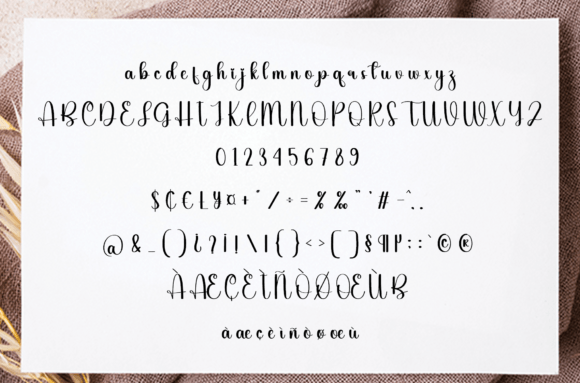 abcdefghijklmnopqrstuvwxyz
ABCDEFGHIJKLMNOPQRSTUVWXYZ
0123456789
$¢€£¥¤+*/÷=%‰"'#-^..
@&_()¿?¡!\|{}<>[]§¶µ:;`©®
ÀÆÇÈÌÑÒØŒÙß
àæçèìñòøœù